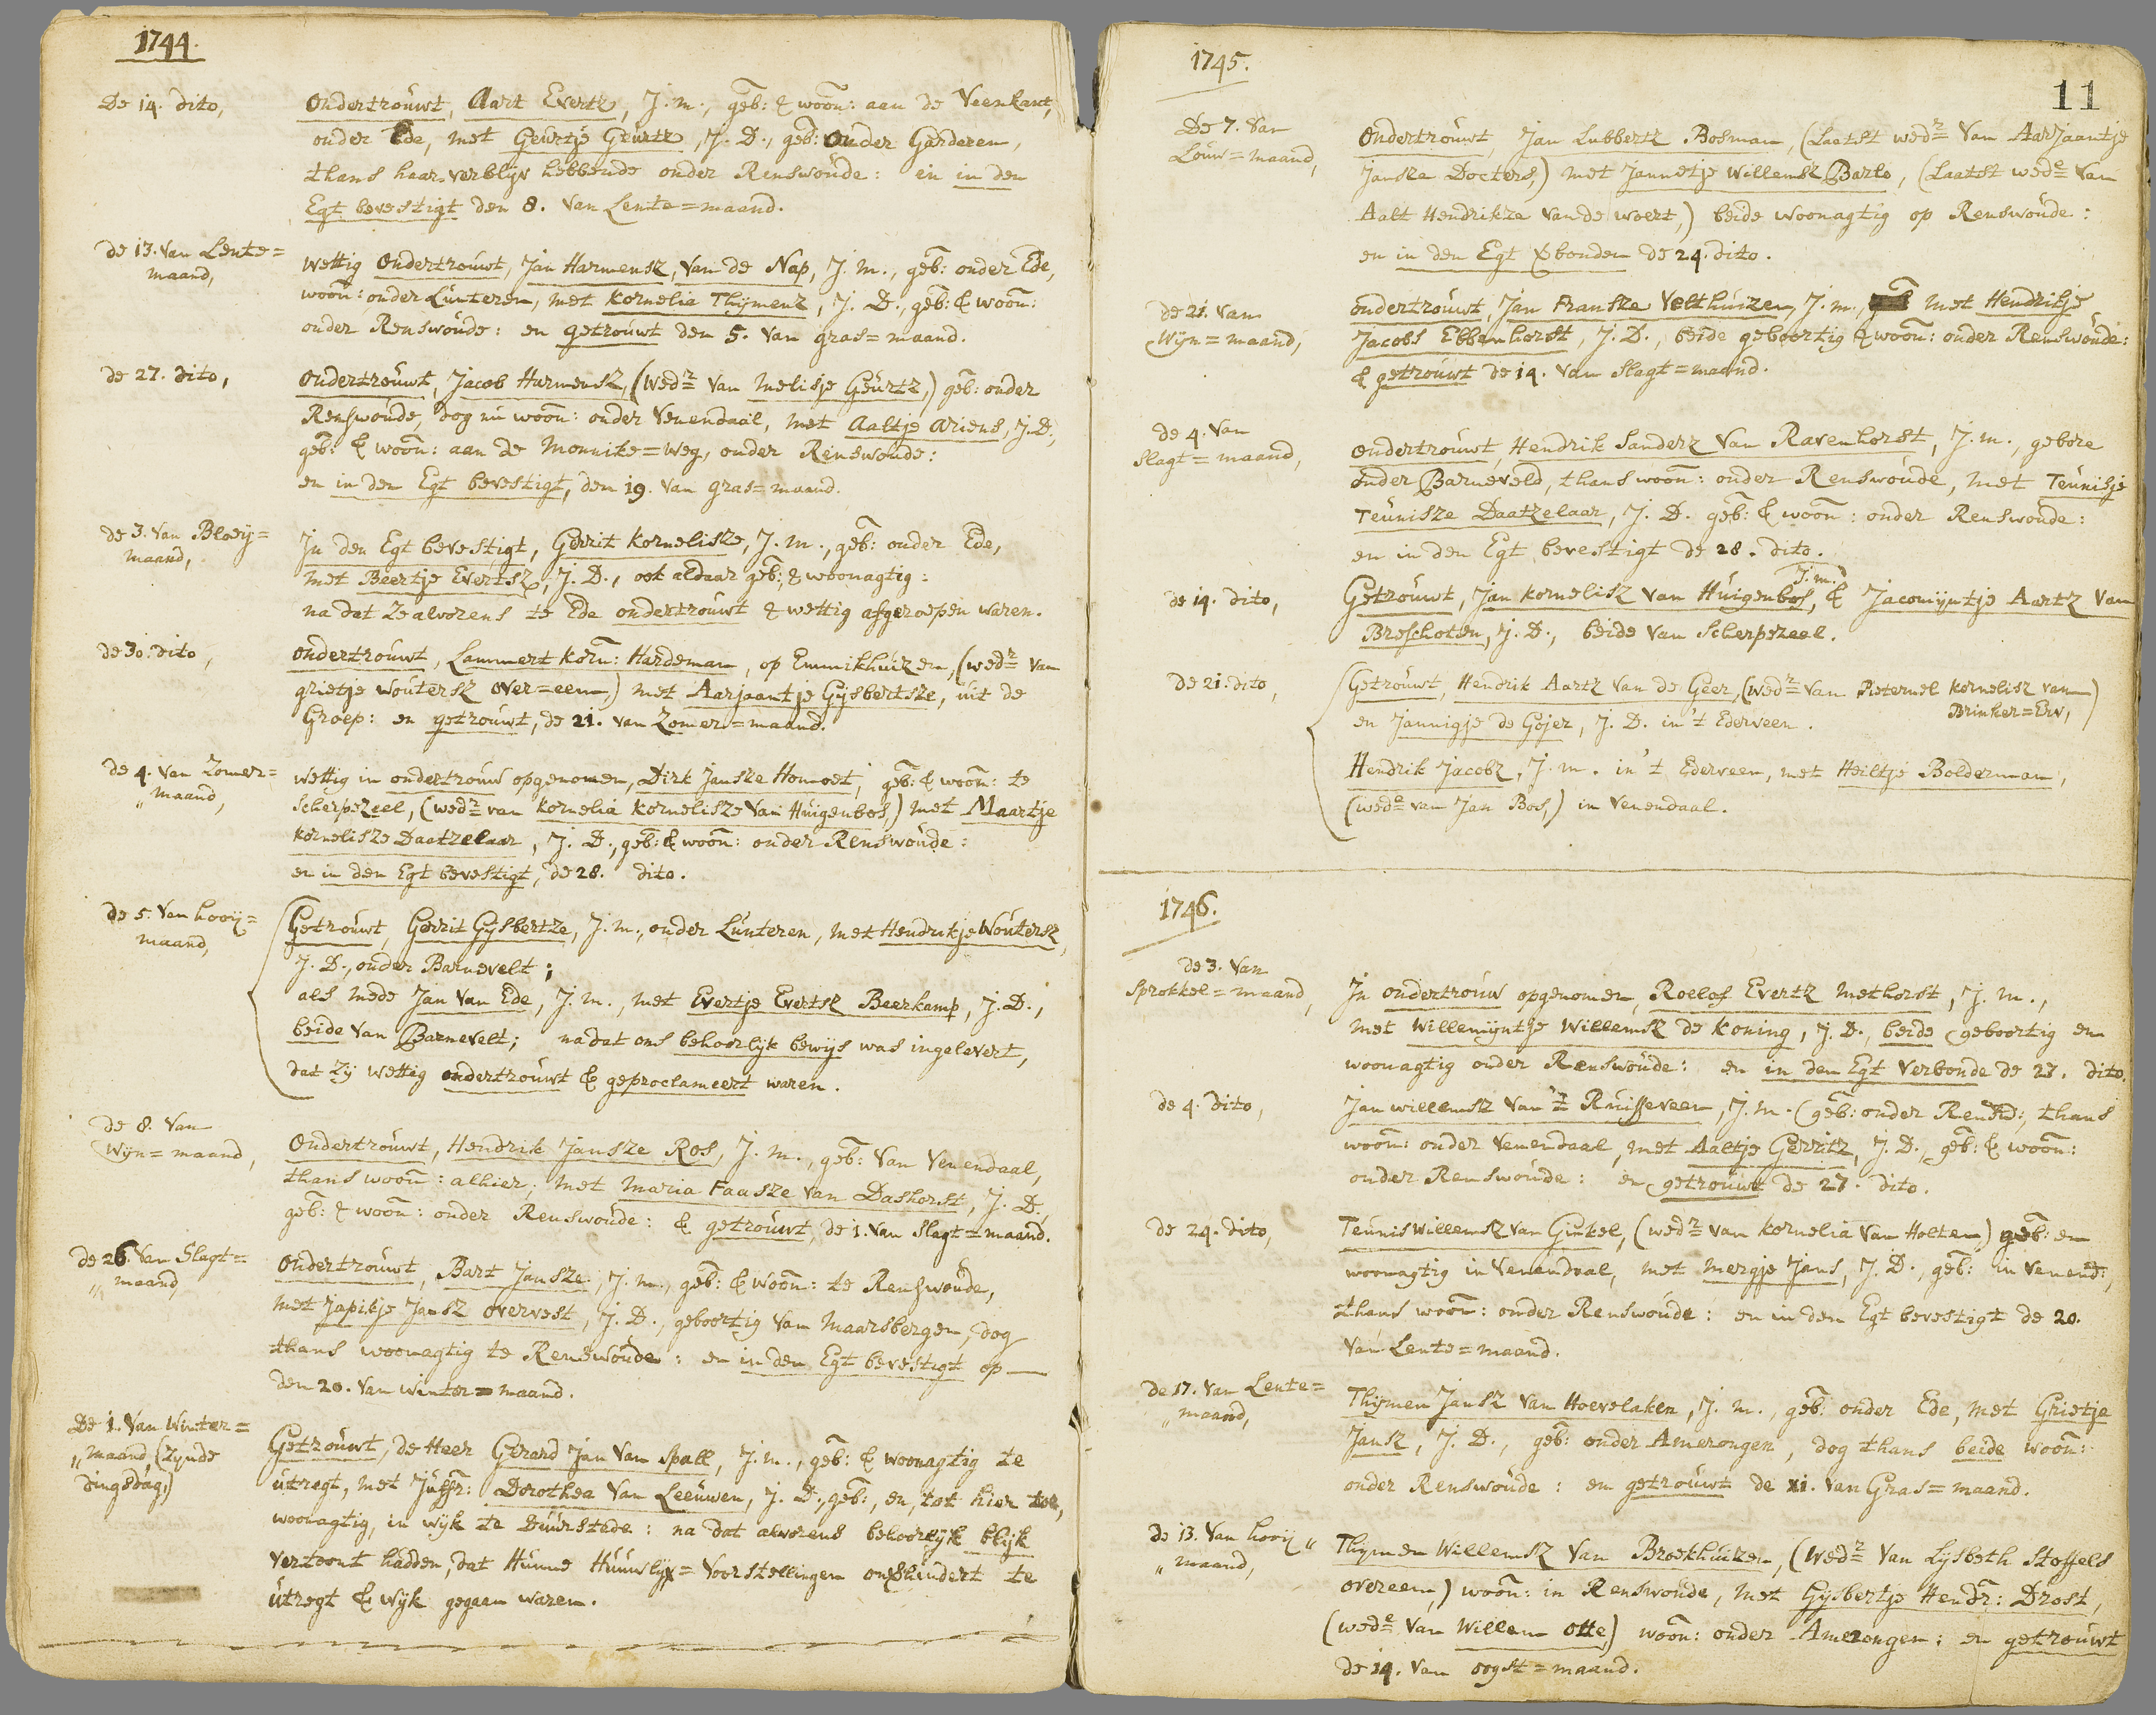 1744.
De 14. dito,
Ondertrouwt, Aart Evertz, J. m., geb: & woon: aan de Veenkant,
onder Ede, met Geurtje Geurtz, J. D., geb: onder Garderen,
thans haar verblijv hebbende onder Renswoude: en in den
Egt bevestigt den 8. van Lente=maand.
de 13. van Lente=
maand,
Wettig ondertrouwt, Jan Harmensz, van de Nap, J. m., geb: onder Ede,
woon: onder Lunteren, met Kornelia Thijmenz, J. D., geb: & woon:
onder Renswoude: en getrouwt den 5. van gras=maand.
de 27. dito,
Ondertrouwt, Jacob Harmensz, (wedr van Melisje Geurtz,) geb: onder
Renswoude, dog nu woon: onder Venendaal, met Aaltje Ariens, J. D.,
geb: & woon: aan de Monnike=weg, onder Renswoude:
en in den Egt bevestigt, den 19. van gras=maand.
de 3. van Bloeij=
maand,
In den Egt bevestigt, Gerrit Kornelisze, J. m., geb: onder Ede,
met Beertje Evertsz, J. D., ook aldaar geb: & woonagtig:
na dat ze alvorens te Ede ondertrouwt & wettig afgeroepen waren.
de 30. dito,
Ondertrouwt, Lammert Korn: Hardeman, op Emmikhuizen, (wedr van
grietje Woutersz over=eem) met Aarjaantje Gijsbertsze, uit de
Groep: en getrouwt, de 21. van Zomer=maand.
de 4. van Zomer=
„ maand,
Wettig in ondertrouw opgenomen, Dirk Jansze Homoet, geb: & woon: te
Scherpezeel, (wedr van Kornelia Kornelisze van Huigenbos,) met Maartje
Kornelisze Daatzelaar, J. D., geb: & woon: onder Renswoude:
en in den Egt bevestigt, de 28. dito.
de 5. van hooij=
maand,
Getrouwt, Gerrit Gijsbertze, J. m., onder Lunteren, met Hendrikje Woutersz,
J. D., onder Barnevelt;
als mede Jan van Ede, J. m., met Evertje Evertsz Beerkamp, J. D.,
beide van Barnevelt; nadat ons behoorlijk bewijs was ingelevert,
dat zij wettig ondertrouwt & geproclameert waren.
de 8. van
Wijn=maand,
Ondertrouwt, Hendrik Jansze Ros, J. m., geb: van Venendaal,
thans woon: alhier, met Maria Faasze van Dashorst, J. D.,
geb: & woon: onder Renswoude: & getrouwt de 1. van Slagt=maand.
de 26. van Slagt=
„ maand,
Ondertrouwt, Bart Jansze, J. m., geb: & woon: te Renswoude,
met Japikje Jansz overvest, J. D., geboortig van Maarsbergen, dog
thans woonagtig te Renswoude: en in den Egt bevestigt op
den 20. van winter=maand.
De 1. van Winter=
„ maand, (zijnde
dingsdag,)
Getrouwt, de Heer Gerard Jan van Spall, J. m., geb: & woonagtig te
utregt, met Juffr: Dorothea van Leeuwen, J. D., geb:, en, tot hier toe,
woonagtig, in wijk te Duurstede: na dat alvorens behoorlijk blijk
vertoont hadden, dat Hunne Huuwlijx=voorstellingen onverhindert te
utregt & Wijk gegaan waren.
11
1745.
De 7. van
Louw=maand,
Ondertrouwt, Jan Lubbertz Bosman, (Laatst wedr van Aarjaantje
Jansze Docters,) met Jannetje Willemsz Barlo, (Laatst wede van
Aalt Hendrikze van de Woert,) beide woonagtig op Renswoude:
en in den Egt verbonden de 24. dito.
de 21. van
Wijn=maand,
ondertrouwt, Jan Fransze Velthuizen, J. m., met Hendrikje
Jacobs Ebbenhorst, J. D., beide geboortig & woon: onder Renswoude:
& getrouwt de 14. van Slagt=maand.
de 4. van
Slagt=maand,
ondertrouwt, Hendrik Sanderz van Ravenhorst, J. m., gebore
onder Barneveld, thans woon: onder Renswoude, met Teunisje
Teunisze Daatzelaar, J. D. geb: & woon: onder Renswoude:
en in den Egt bevestigt de 28. dito.
de 14. dito,
J. m.
Getrouwt, Jan Kornelisz van Huigenbos, & Jacomijntje Aartz van
Breschoten, J. D., beide van Scherpezeel.
de 21. dito,
Getrouwt, Hendrik Aartz van de Geer, (wedr van Pieternel Kornelisz van
Brinker=Erv,)
en Jannigje de Gojer, J. D. in 't Ederveen.
Hendrik Jacobz, J. m. in 't Ederveen, met Heiltje Bolderman,
(wede van Jan Bos,) in Venendaal.
1746.
de 3. van
Sprokkel=maand,
In ondertrouw opgenomen, Roelof Evertz Methorst, J. m.,
met Willemijntje Willemsz de Koning, J. D., beide geboortig en
woonagtig onder Renswoude: en in den Egt verbonde de 27. dito.
de 4. dito,
Jan Willemsz van 't Ruisseveen, J. m. (geb: onder Rensw:, thans
woon: onder Venendaal, met Aaltje Gerritz, J. D., geb: & woon:
onder Renswoude: en getrouwt de 27. dito.
de 24. dito,
Teunis Willemsz van Ginkel, (wedr van Kornelia van Holten) geb: en
woonagtig in Venendaal, met Mergje Jans, J. D., geb: in Venend:,
thans woon: onder Renswoude: en in den Egt bevestigt de 20.
van Lente=maand.
de 17. van Lente=
„ maand,
Thijmen Jansz van Hoevelaken, J. m., geb: onder Ede, met Grietje
Jansz, J. D., geb: onder Amerongen, dog thans beide woon:
onder Renswoude: en getrouwt de xi. van Gras=maand.
de 13. van hooij„
„ maand,
Thijmen Willemsz van Broekhuizen, (wedr van Lijsbeth Stoffels
overeem,) woon: in Renswoude, met Gijsbertje Hendr: Drost,
(wede van Willem Otte,) woon: onder Amerongen: en getrouwt
de 14. van oogst=maand.